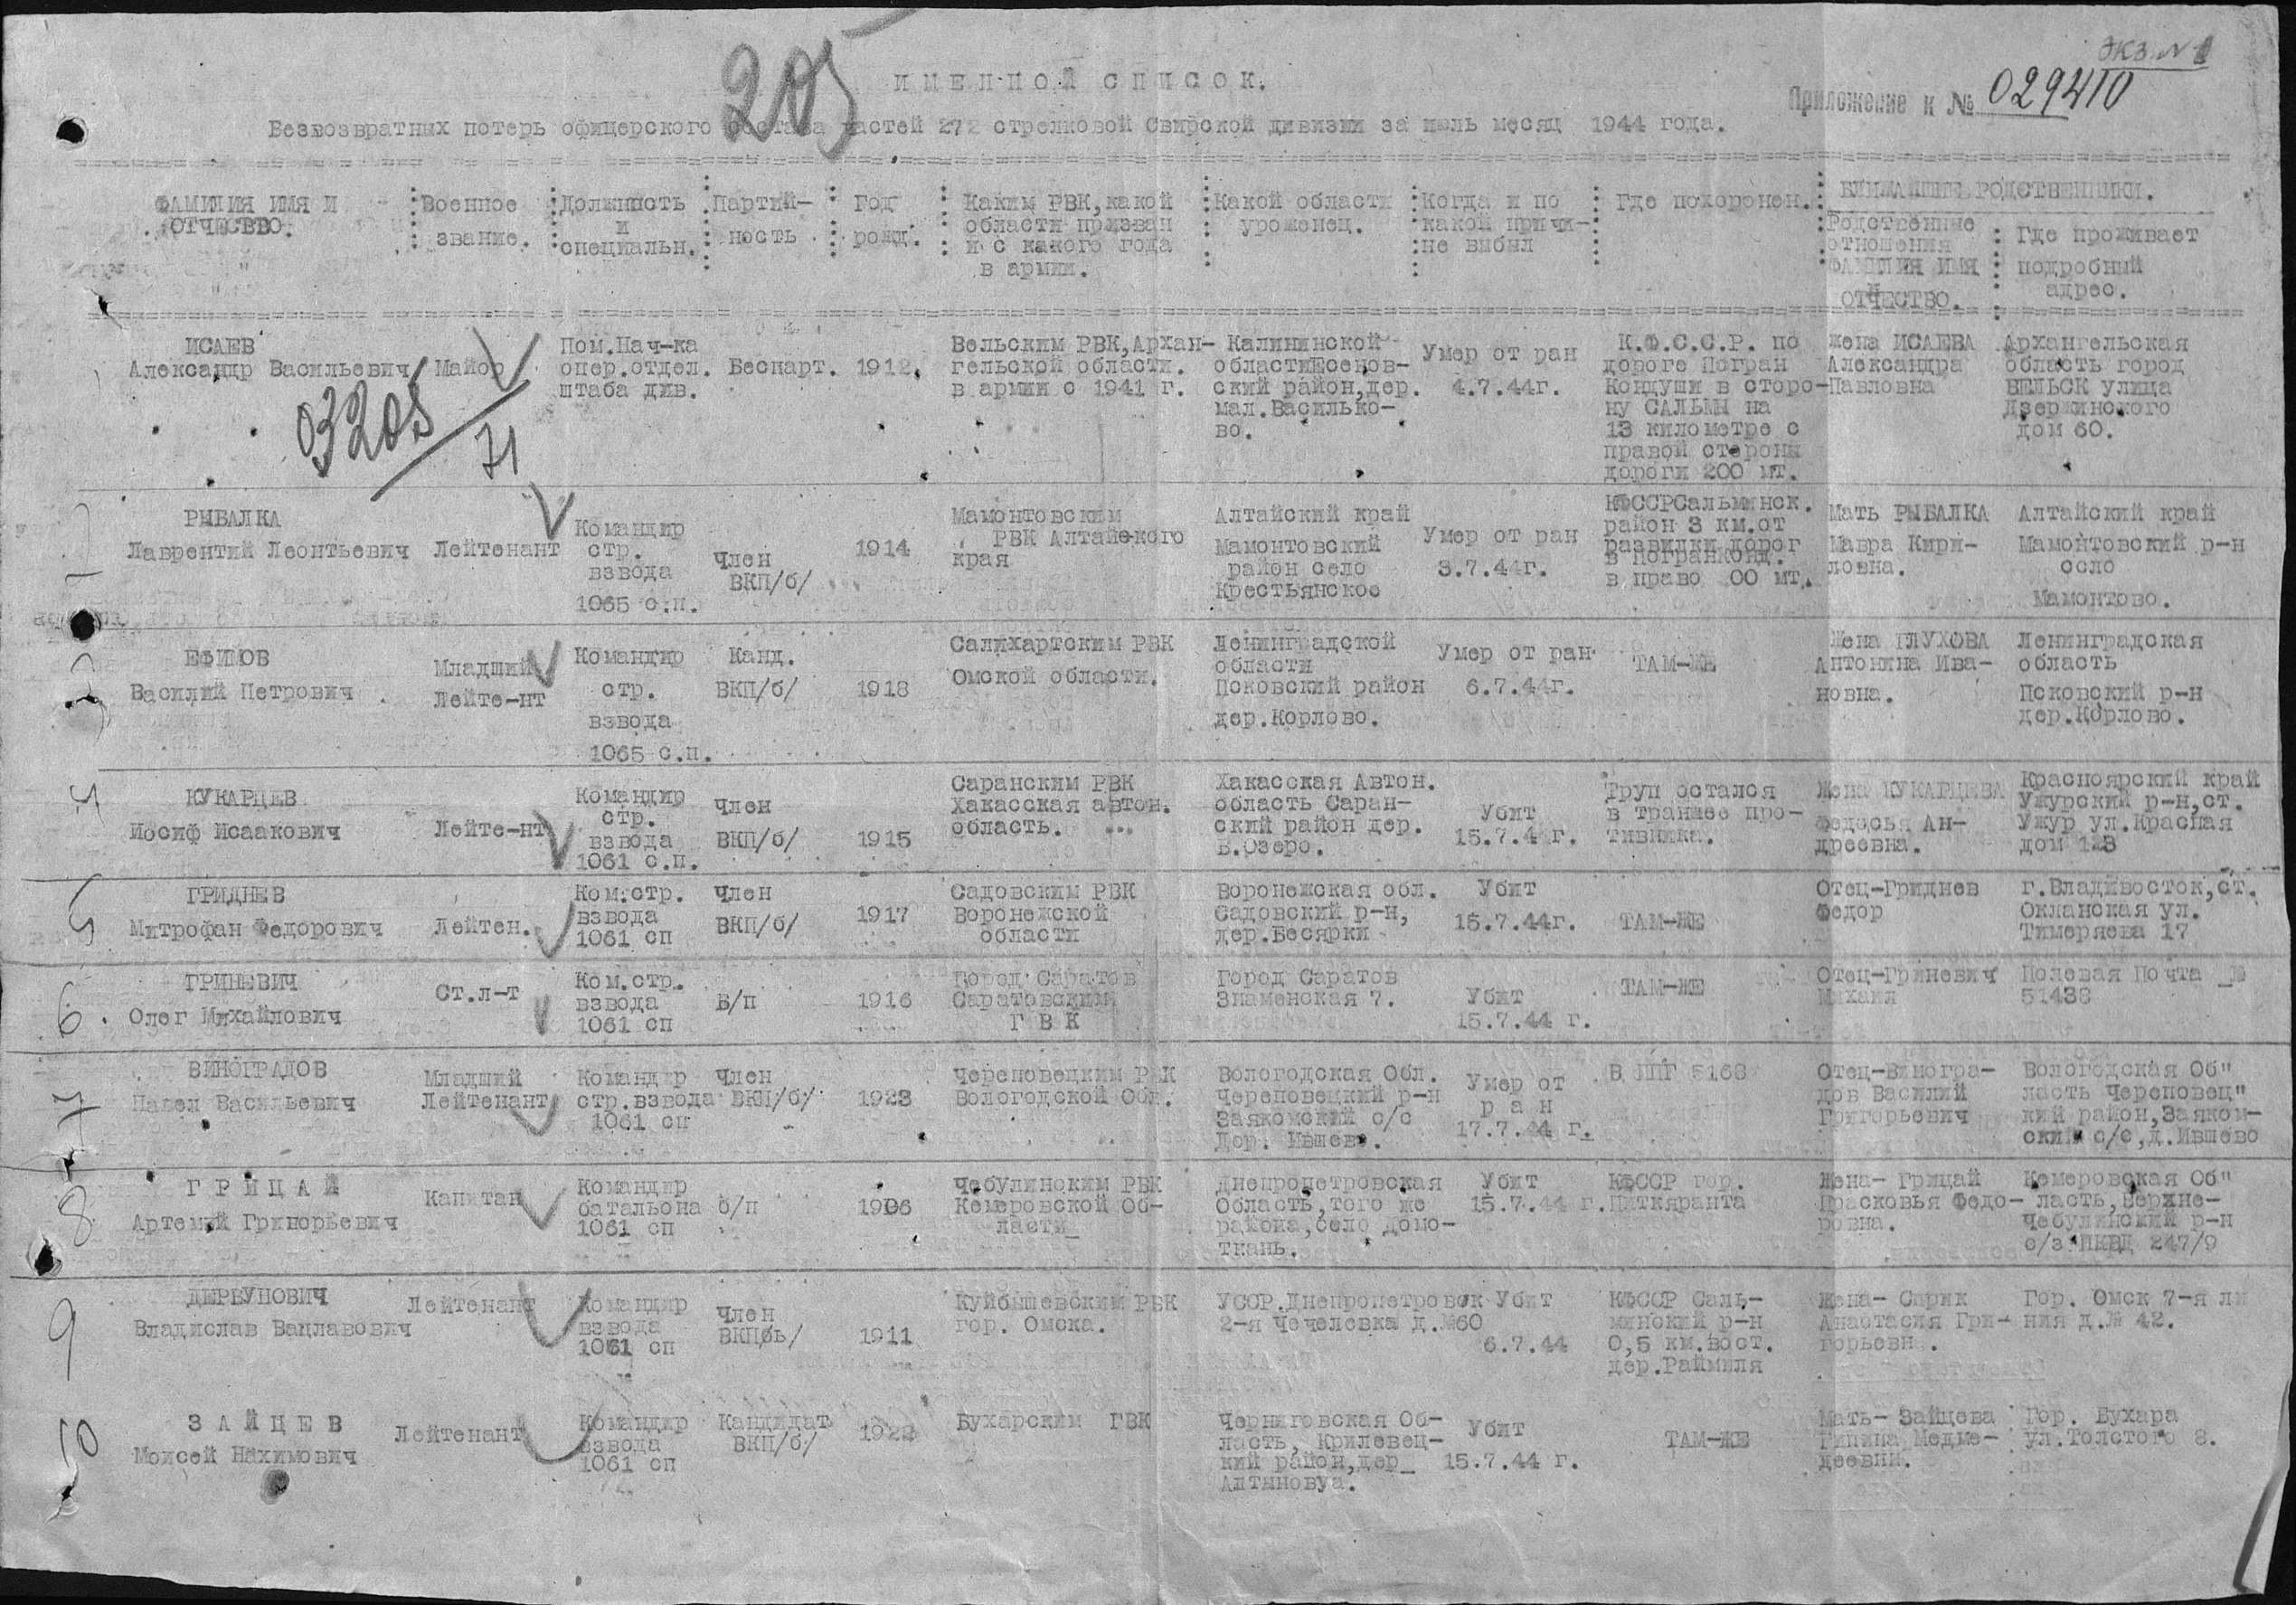 экз. № 1
205
ИМЕННОЙ СПИСОК.
Приложение к № 029410
Безвозвратных потерь офицерского состава частей 272 стрелковой Свирской дивизии за июль месяц 1944 года.
ФАМИЛИЯ ИМЯ И ОТЧЕСТВО.
Военное звание.
Должность и специальн.
Партий-ность
Год рожд.
Каким РВК, какой области призван и с какого года в армии.
Какой области уроженец.
Когда и по какой причи-не выбыл
Где похоронен.
БЛИЖАЙШИЕ РОДСТВЕННИКИ.
Родственные отношения ФАМИЛИЯ ИМЯ И ОТЧЕСТВО.
Где проживает подробный адрес.
ИСАЕВ
Александр Васильевич
Майор
Пом.Нач-ка
опер.отдел.
штаба див.
Беспарт.
1912.
Вельским РВК, Архан-
гельской области.
в армии с 1941 г.
Калининской
области Есенов-
ский район, дер.
мал.Василько-
во.
Умер от ран
4.7.44г.
К.Ф.С.С.Р. по
дороге Погран
Кондуши в сторо-
ну САЛЬМЫ на
13 километре с
правой стороны
дороги 200 мт.
Жена ИСАЕВА
Александра
Павловна
Архангельская
область город
ВЕЛЬСК улица
Дзержинского
дом 60.
03205
71
РЫБАЛКА
Лаврентий Леонтьевич
Лейтенант
Командир
стр.
взвода
1065 с.п.
Член
ВКП/б/
1914
Мамонтовским
РВК Алтайского
края
Алтайский край
Мамонтовский
район село
Крестьянское
Умер от ран
3.7.44г.
КФССР Сальминск.
район 3 км.от
развилки дорог
в Погранконд.
в право 00 мт.
Мать РЫБАЛКА
Мавра Кири-
ловна.
Алтайский край
Мамонтовский р-н
село
Мамонтово.
ЕФИМОВ
Василий Петрович
Младший
Лейте-нт
Командир
стр.
взвода
1065 с.п.
Канд.
ВКП/б/
1918
Салихартским РВК
Омской области.
Ленинградской
области
Псковский район
дер.Корлово.
Умер от ран
6.7.44г.
ТАМ-ЖЕ
Жена ГЛУХОВА
Антонина Ива-
новна.
Ленинградская
область
Псковский р-н
дер.Корлово.
4
КУКАРЦЕВ
Иосиф Исаакович
Лейте-нт
Командир
стр.
взвода
1061 с.п.
Член
ВКП/б/
1915
Саранским РВК
Хакасская автон.
область.
Хакасская Автон.
область Саран-
ский район дер.
Б.Озеро.
Убит
15.7.4 г.
Труп остался
в траншее про-
тивника.
Жена КУКАРЦЕВА
Федосья Ан-
дреевна.
Красноярский край
Ужурский р-н, ст.
Ужур ул.Красная
дом 123
5
ГРИДНЕВ
Митрофан Федорович
Лейтен.
Ком.стр.
взвода
1061 сп
Член
ВКП/б/
1917
Садовским РВК
Воронежской
области
Воронежская обл.
Садовский р-н,
дер.Бесярки
Убит
15.7.44г.
ТАМ-ЖЕ
Отец-Гриднев
Федор
г.Владивосток, ст.
Окланская ул.
Тимерязва 17
6.
ГРИНЕВИЧ
Олег Михайлович
Ст.л-т
Ком.стр.
взвода
1061 сп
Б/п
1916
Город Саратов
Саратовским
Г В К
Город Саратов
Знаменская 7.
Убит
15.7.44 г.
ТАМ-ЖЕ
Отец-Гриневич
Михаил
Полевая Почта №
51438
7
ВИНОГРАДОВ
Павел Васильевич
Младший
Лейтенант
Командир
стр.взвода
1061 сп
Член
ВКП/б/
1923
Череповецким РВК
Вологодской Обл.
Вологодская Обл.
Череповецкий р-н
Заякомский с/с
Дер. Ившево.
Умер от
р а н
17.7.44 г.
В ППГ 5168
Отец-Виногра-
дов Василий
Григорьевич
Вологодская Об"
ласть Череповец"
кий район, Заяком-
ский с/с, д.Ившево
8
Г Р И Ц А Й
Артемий Григорьевич
Капитан
Командир
батальона
1061 сп
б/п
1906
Чебулинским РВК
Кемеровской Об-
ласти_
Днепропетровская
Область, того же
района, село Домо-
ткань.
Убит
15.7.44 г.
КФССР гор.
Питкяранта
Жена- Грицай
Прасковья Федо-
ровна.
Кемеровская Об"
ласть, Верхне-
Чебулинский р-н
с/з НКВД 247/9
9
ДЫРВУНОВИЧ
Владислав Вацлавович
Лейтенант
Командир
взвода
1061 сп
Член
ВКПбь/
1911
Куйбышевским РВК
гор. Омска.
УССР.Днепропетровск
2-я Чечеловка д.№60
Убит
6.7.44
КФССР Саль-
минский р-н
0,5 км.вост.
дер.Раймиля
Жена- Сприк
Анастасия Гри-
горьевн .
Гор. Омск 7-я ли
ния д.№ 42.
10
З А Й Ц Е В
Моисей Нахимович
Лейтенант
Командир
взвода
1061 сп
Кандидат
ВКП/б/
1922
Бухарским ГВК
Черниговская Об-
ласть, Крилевец-
кий район, дер_
Алтыновуа.
Убит
15.7.44 г.
ТАМ-ЖЕ
Мать- Зайцева
Гинина Медже-
деевни.
Гор. Бухара
ул.Толстого 8.